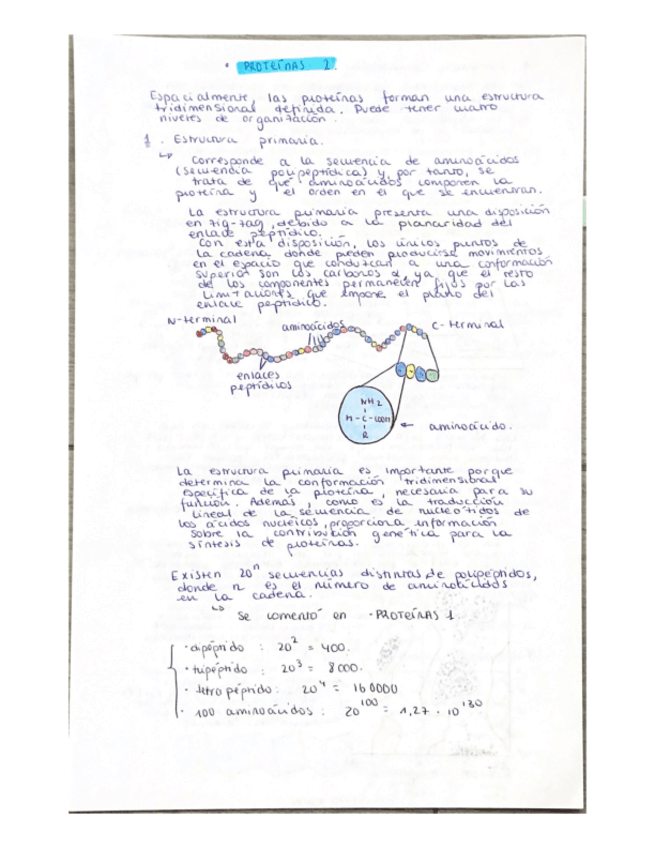 • PROTEÍNAS 2.
Espacialmente, las proteínas forman una estructura
tridimensional definida. Puede tener cuatro
niveles de organización.
1. Estructura primaria.
↳ Corresponde a la secuencia de aminoácidos
(secuencia polipeptídica) y, por tanto, se
trata de qué aminoácidos componen la
proteína y el orden en el que se encuentran.
La estructura primaria presenta una disposición
en zig-zag, debido a la planaridad del
enlace peptídico.
Con esta disposición, los únicos puntos de
la cadena donde pueden producirse movimientos
en el espacio que conduzcan a una conformación
superior son los carbonos α, ya que el resto
de los componentes permanecen fijos por las
limitaciones que impone el plano del
enlace peptídico.
N-terminal
aminoácidos
C-terminal
enlaces
peptídicos
NH2
H-C-COOH
R
← aminoácido.
La estructura primaria es importante porque
determina la conformación tridimensional
específica de la proteína, necesaria para su
función. Además, como es la traducción
lineal de la secuencia de nucleótidos de
los ácidos nucleicos, proporciona información
sobre la contribución genética para la
síntesis de proteínas.
Existen 20ⁿ secuencias distintas de polipéptidos,
donde n es el número de aminoácidos
en la cadena.
↳ Se comentó en • PROTEÍNAS 1
· dipéptido : 20² = 400.
· tripéptido : 20³ = 8000.
· tetrapéptido : 20⁴ = 160000
· 100 aminoácidos : 20¹⁰⁰ = 1,27 · 10¹³⁰